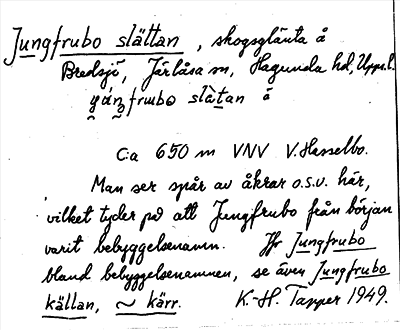 Jungfrubo slättan, skogsglänta å
Bredsjö, Järlåsa sn, Hagunda hd, Upps.l.
slätan å
C:a 650 m VNV V. Hasselbo.
Man ser spår av åkrar o.s.v. här,
vilket tyder på att Jungfrubo från början
varit bebyggelsenamn. Jfr Jungfrubo
bland bebyggelsenamnen, se även Jungfrubo
källan, ~ kärr. K.-H. Tapper 1949.